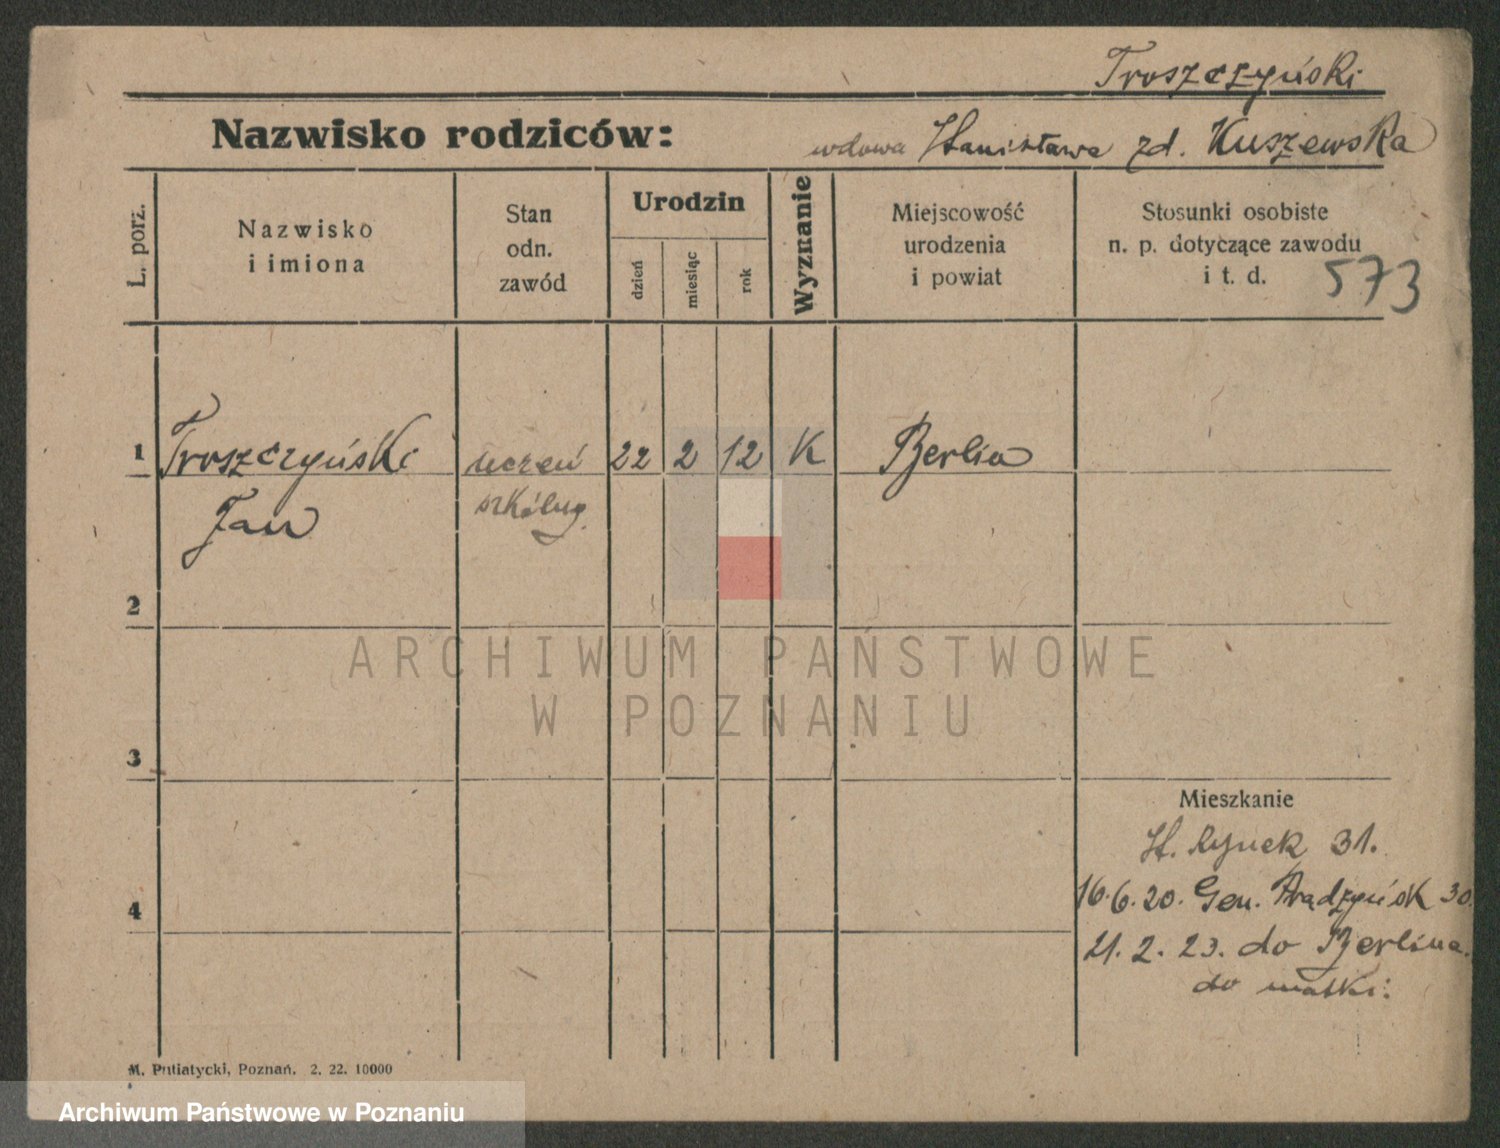 Troszczyński
Nazwisko rodziców: wdowa Stanisława zd. Kuszewska
L. porz.
Nazwisko
i imiona
Stan
odn.
zawód
Urodzin
dzień
miesiąc
rok
Wyznanie
Miejscowość
urodzenia
i powiat
Stosunki osobiste
n. p. dotyczące zawodu
i t. d.
573
1 Troszczyński uczeń 22 2 12 K Berlin
Jan szkólny
2
3
4
Mieszkanie
St. Rynek 31.
16.6.20. Gen. Prądzyńsk 30.
21.2.23. do Berlina
do matki.
M. Putiatycki, Poznań. 2. 22. 10000
ARCHIWUM PAŃSTWOWE
W POZNANIU
Archiwum Państwowe w Poznaniu